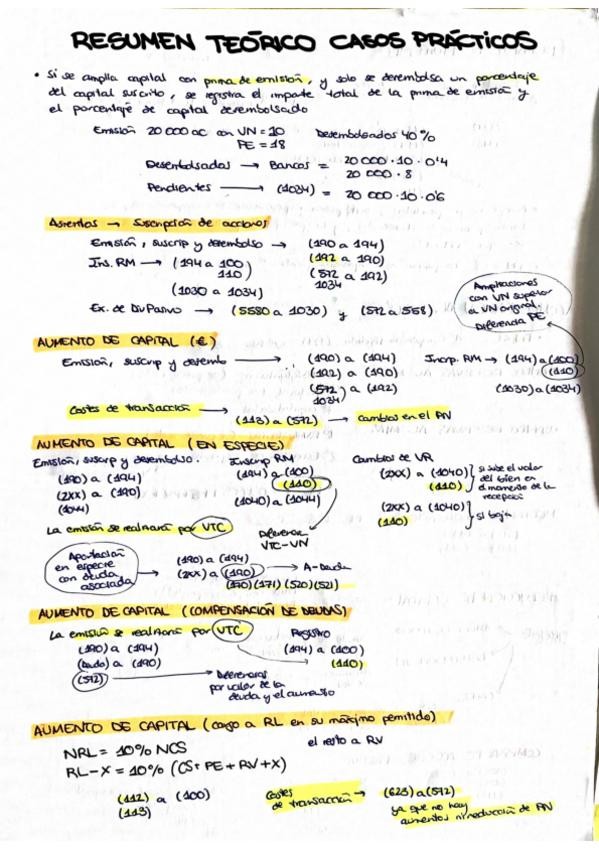 RESUMEN TEÓRICO CASOS PRÁCTICOS
• Si se amplia capital con prima de emisión, y solo se desembolsa un porcentaje
del capital suscrito, se registra el importe total de la prima de emisión y
el porcentaje de capital desembolsado
Emisión 20 000 ac con VN = 10 Desembolsados 40%
PE = 18
Desembolsados → Bancos = 20 000 · 10 · 0'4
20 000 · 8
Pendientes → (1034) = 20 000 · 10 · 0'6
Asientos → Suscripción de acciones
Emisión, suscrip y desembolso → (190 a 194)
(192 a 190)
Ins. RM → (194 a 100 (572 a 192)
110) 1034
(1030 a 1034)
Ex. de Div Pasivo → (5580 a 1030) y (572 a 558).
Ampliaciones
con VN superior
al VN original.
Diferencia PE
AUMENTO DE CAPITAL (€)
Emisión, suscrip y desemb → (190) a (194) Inscrip. RM → (194) a (100)
(192) a (190) (110)
(572) a (192) (1030) a (1034)
1034
Costes de transacción → (113) a (572) → cambios en el PN
AUMENTO DE CAPITAL (EN ESPECIE)
Emisión, suscrip y desembolso. Inscrip RM Cambios de VR
(190) a (194) (194) a (100) (2XX) a (1040) si sube el valor
(2XX) a (190) (110) (110) del bien en
el momento de la
recepción
(1044) (1040) a (1044) (2XX) a (1040) si baja
(110)
La emisión se realizará por VTC Diferencia
VTC-VN
Aportación
en especie
con deuda
asociada → (190) a (194)
(2XX) a (190) → A-Deuda
(170) (171) (520) (521)
AUMENTO DE CAPITAL (COMPENSACIÓN DE DEUDAS)
La emisión se realizará por VTC Registro
(190) a (194) (194) a (100)
(Deuda) a (190) (110)
(572) → Diferencias
por valor de la
deuda y el aumento
AUMENTO DE CAPITAL (cargo a RL en su máximo permitido)
el resto a RV
NRL = 10% NCS
RL-X = 10% (CS + PE + RV + X)
(112) a (100) Costes
de transacción → (623) a (572)
(113) ya que no hay
aumentos ni reducción de PN